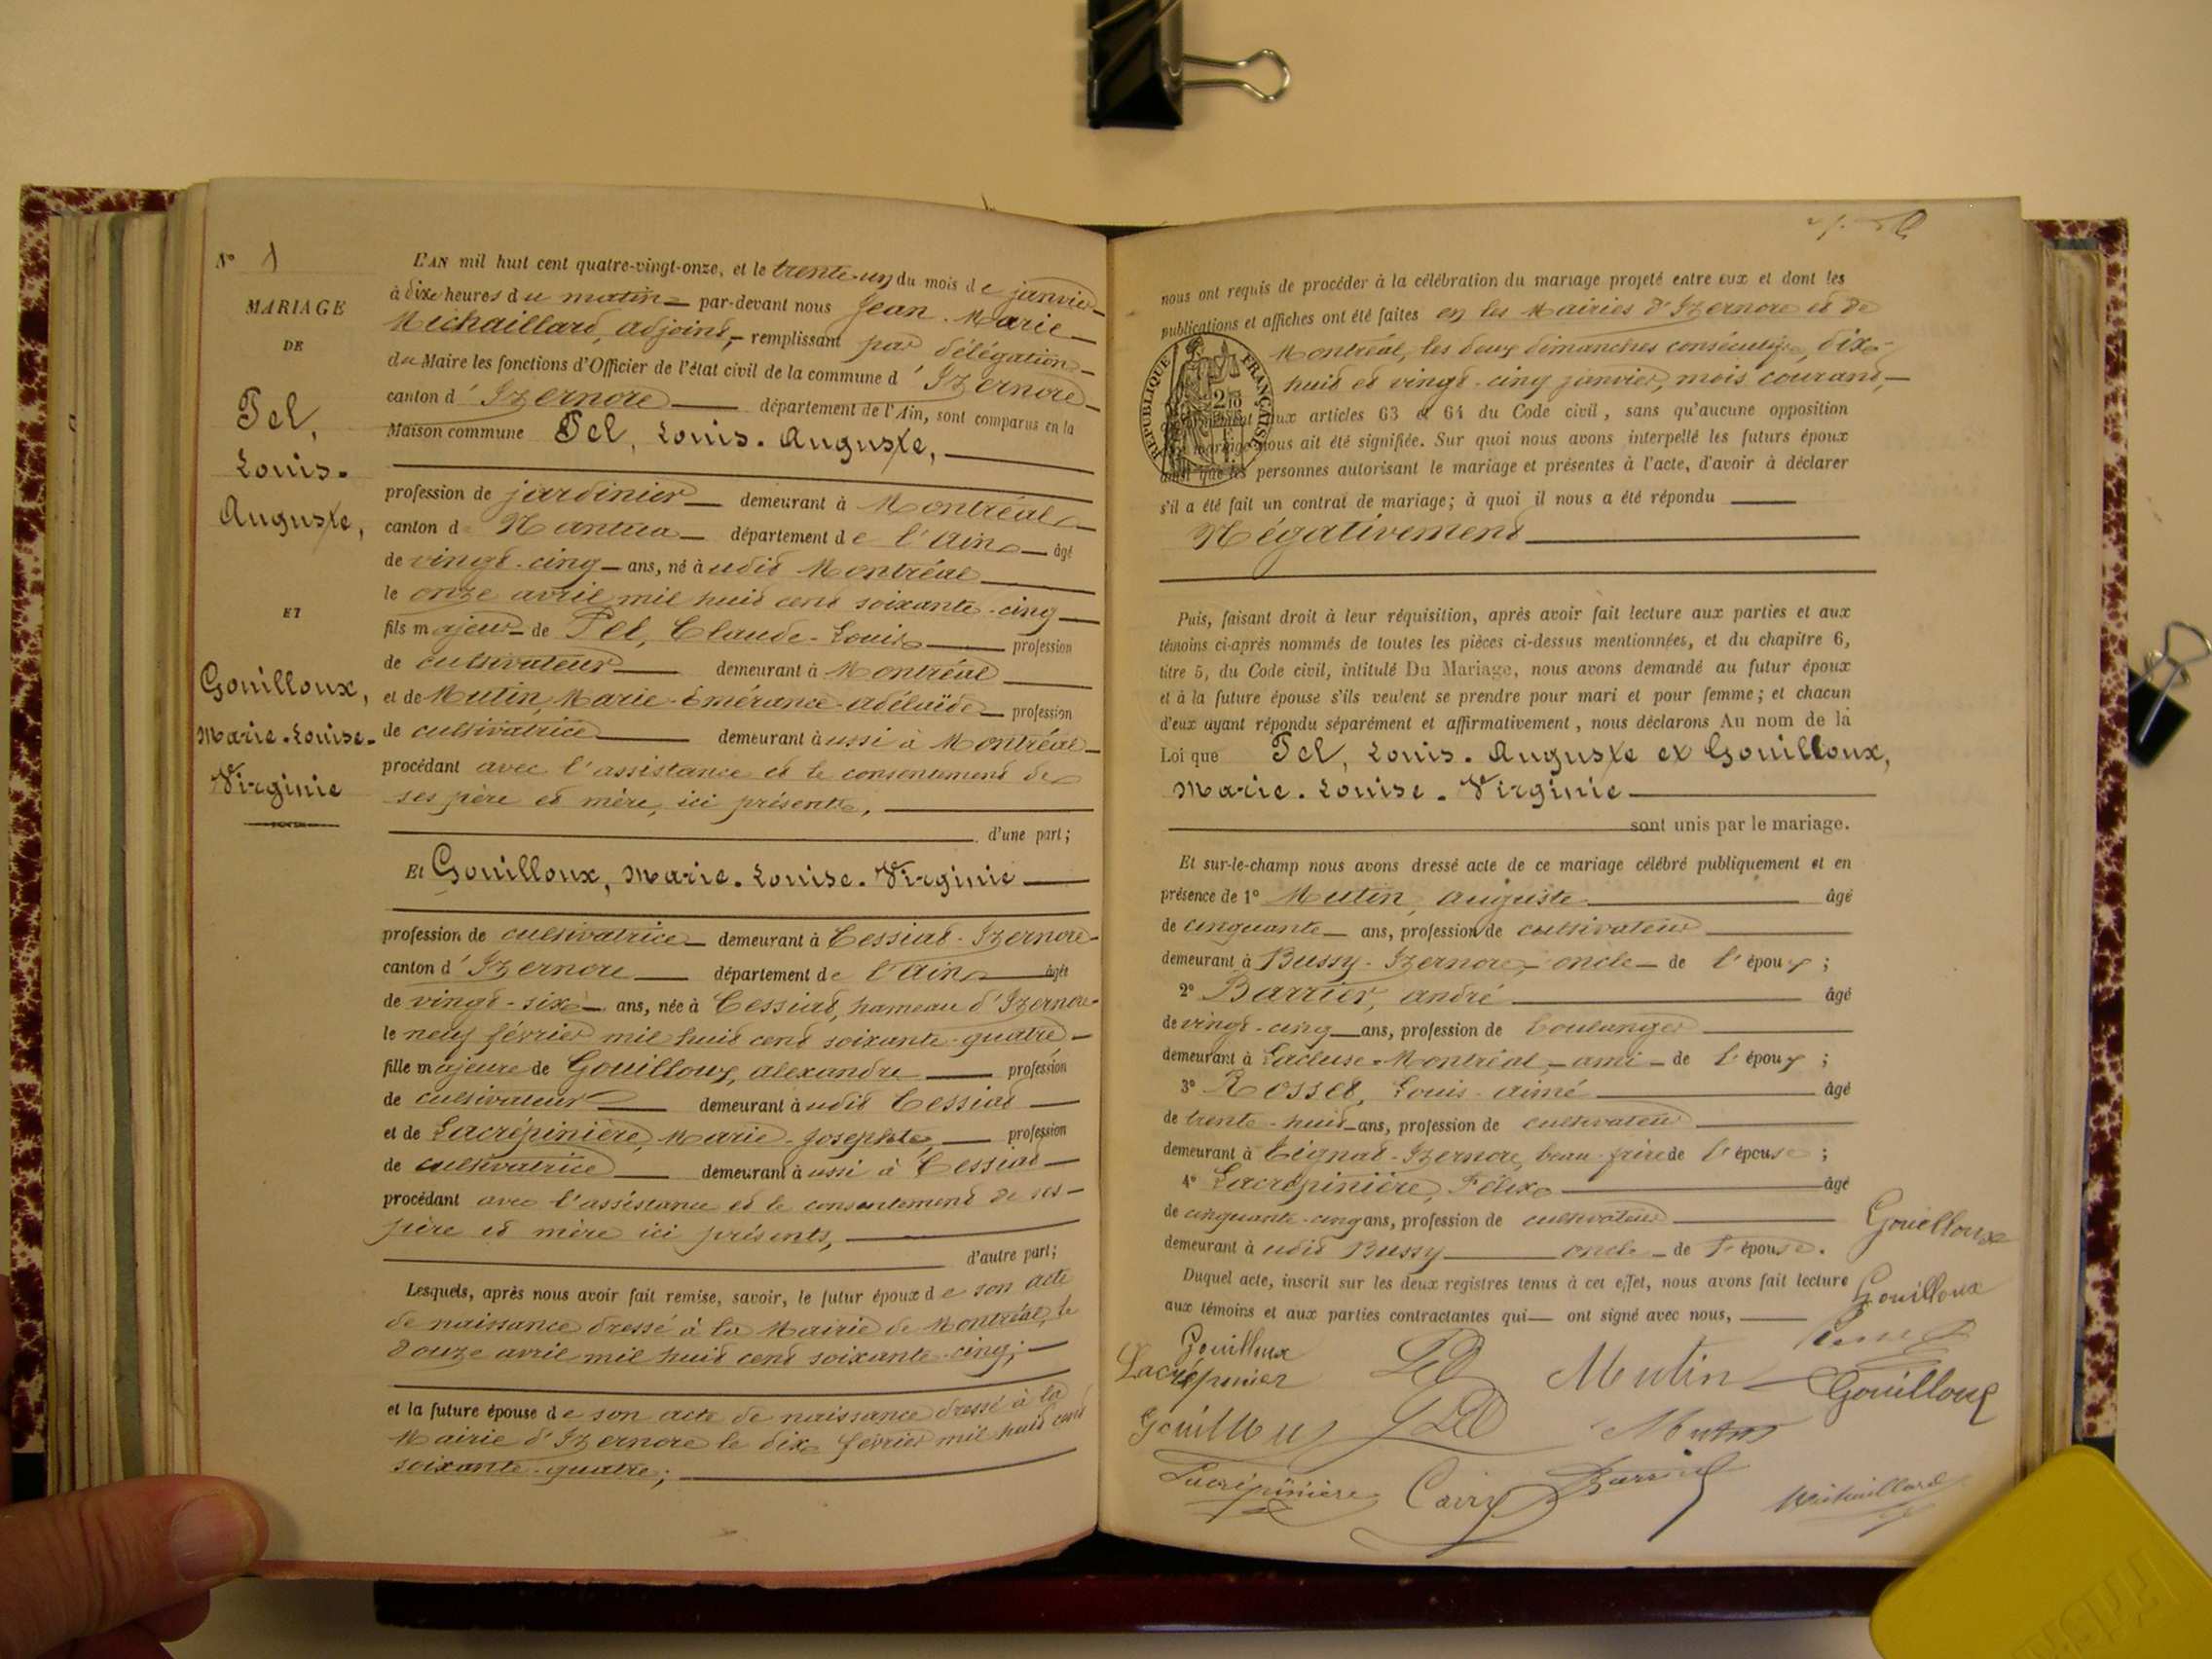 N° 1
MARIAGE
DE
Pel,
Louis-
Auguste,
ET
Gouilloux,
Marie-Louise-
Virginie
L'AN mil huit cent quatre-vingt-onze, et le trente-un du mois de janvier
à dix heures du matin par-devant nous Jean-Marie
Michaillard, adjoint, remplissant par délégation
du Maire les fonctions d'Officier de l'état civil de la commune d'Izernore
canton d'Izernore département de l'Ain, sont comparus en la
Maison commune Pel, Louis-Auguste,
profession de jardinier demeurant à Montréal
canton de Nantua département de l'Ain âgé
de vingt-cinq ans, né audit Montréal
le onze avril mil huit cent soixante-cinq
fils majeur de Pel, Claude-Louis profession
de cultivateur demeurant à Montréal
et de Mutin, Marie-Emérance-Adélaïde profession
de cultivatrice demeurant aussi à Montréal
procédant avec l'assistance et le consentement de
ses père et mère, ici présents,
d'une part;
Et Gouilloux, Marie-Louise-Virginie
profession de cultivatrice demeurant à Cessiat-Izernore
canton d'Izernore département de l'Ain âgée
de vingt-six ans, née à Cessiat, hameau d'Izernore
le neuf février mil huit cent soixante-quatre,
fille majeure de Gouilloux, Alexandre profession
de cultivateur demeurant audit Cessiat
et de Lacrépinière, Marie-Josephte, profession
de cultivatrice demeurant aussi à Cessiat
procédant avec l'assistance et le consentement de ses
père et mère ici présents,
d'autre part;
Lesquels, après nous avoir fait remise, savoir, le futur époux de son acte
de naissance dressé à la Mairie de Montréal, le
douze avril mil huit cent soixante-cinq;
et la future épouse de son acte de naissance dressé à la
Mairie d'Izernore le dix février mil huit cent
soixante-quatre;
nous ont requis de procéder à la célébration du mariage projeté entre eux et dont les
publications et affiches ont été faites en les Mairies d'Izernore et de
Montréal, les deux dimanches consécutifs, dix-
huit et vingt-cinq janvier, mois courant,
REPUBLIQUE FRANÇAISE
aux articles 63 et 64 du Code civil, sans qu'aucune opposition
mariage nous ait été signifiée. Sur quoi nous avons interpellé les futurs époux
ainsi que les personnes autorisant le mariage et présentes à l'acte, d'avoir à déclarer
s'il a été fait un contrat de mariage; à quoi il nous a été répondu
Négativement
Puis, faisant droit à leur réquisition, après avoir fait lecture aux parties et aux
témoins ci-après nommés de toutes les pièces ci-dessus mentionnées, et du chapitre 6,
titre 5, du Code civil, intitulé Du Mariage, nous avons demandé au futur époux
et à la future épouse s'ils veulent se prendre pour mari et pour femme; et chacun
d'eux ayant répondu séparément et affirmativement, nous déclarons Au nom de la
Loi que Pel, Louis-Auguste et Gouilloux,
Marie-Louise-Virginie
sont unis par le mariage.
Et sur-le-champ nous avons dressé acte de ce mariage célébré publiquement et en
présence de 1° Mutin, Auguste âgé
de cinquante ans, profession de cultivateur
demeurant à Bussy-Izernore, oncle de l'époux;
2° Barrier, André âgé
de vingt-cinq ans, profession de boulanger
demeurant à Lacluse-Montréal, ami de l'époux;
3° Rosset, Louis-Aimé âgé
de trente-huit ans, profession de cultivateur
demeurant à Tignat-Izernore, beau-frère de l'épouse;
4° Lacrépinière, Félix âgé
de cinquante-cinq ans, profession de cultivateur
demeurant audit Bussy oncle de l'épouse.
Duquel acte, inscrit sur les deux registres tenus à cet effet, nous avons fait lecture
aux témoins et aux parties contractantes qui ont signé avec nous,
Gouilloux
Gouilloux
Gouilloux
Lacrépinier
Pel
Mutin
Gouilloux
Gouilloux
Pel
Mutin
Lacrépinière
Barrier
Michaillard